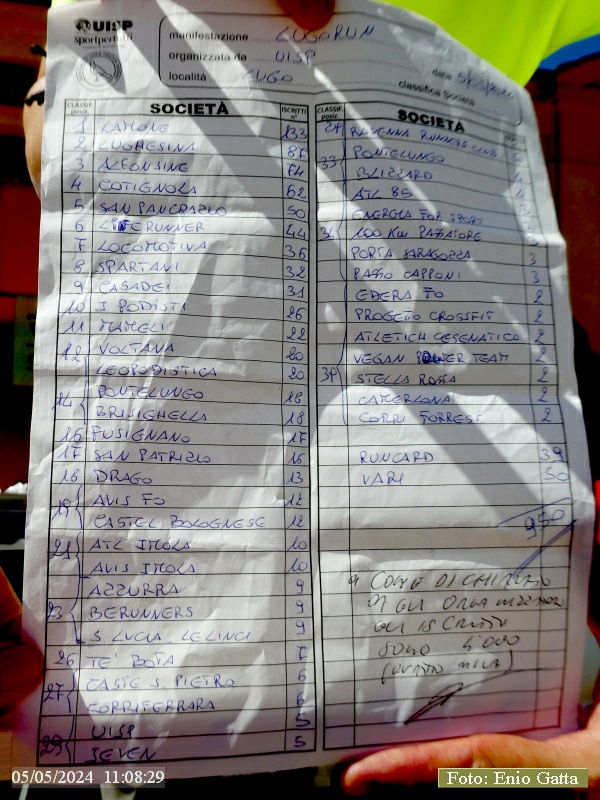 UISP
sportpertutti
manifestazione LUGORUN
organizzata da UISP
località LUGO
data
classifica Società
CLASSIF. posiz. SOCIETÀ ISCRITTI n°
1 LAMONE 133
2 LUGHESINA 87
3 ALFONSINE 74
4 COTIGNOLA 62
5 SAN PANCRAZIO 50
6 LIFE RUNNER 44
7 LOCOMOTIVA 36
8 SPARTANI 32
9 CASADEI 31
10 I PODISTI 26
11 MAMELI 22
12 VOLTANA 20
LEOPODISTICA 20
14 PONTELUNGO 18
BRISIGHELLA 18
16 FUSIGNANO 17
17 SAN PATRIZIO 16
18 DRAGO 13
19 AVIS FO 12
CASTEL BOLOGNESE 12
21 ATL IMOLA 10
AVIS IMOLA 10
AZZURRA 9
23 BERUNNERS 9
S LUCIA LELINCI 9
26 TE' BOTA 7
27 CASTE S. PIETRO 6
CORRIFERRARA 6
29 UISP 5
SEVEN 5
CLASSIF. posiz. SOCIETÀ
RAVENNA RUNNERS CLUB
33 PONTELUNGO
BLIZZARD
ATL 85
ENERGIA FOR SPORT
100 KM PASSATORE
PORTA SARAGOZZA 3
PASSO CAPPONI 3
EDERA FO 2
PROGETO CROSSFIT 2
ATLETICH CESENATICO 2
VEGAN POWER TEAM 2
STELLA ROSSA 2
CAMERLONA 2
CORRI FORREST 2
RUNCARD 39
VARI 50
950
COME DICHIARATO
GLI ORGANIZZATORI
GLI ISCRITTI
SONO 4000
(QUATTRO MILA)
05/05/2024 11:08:29
Foto: Enio Gatta